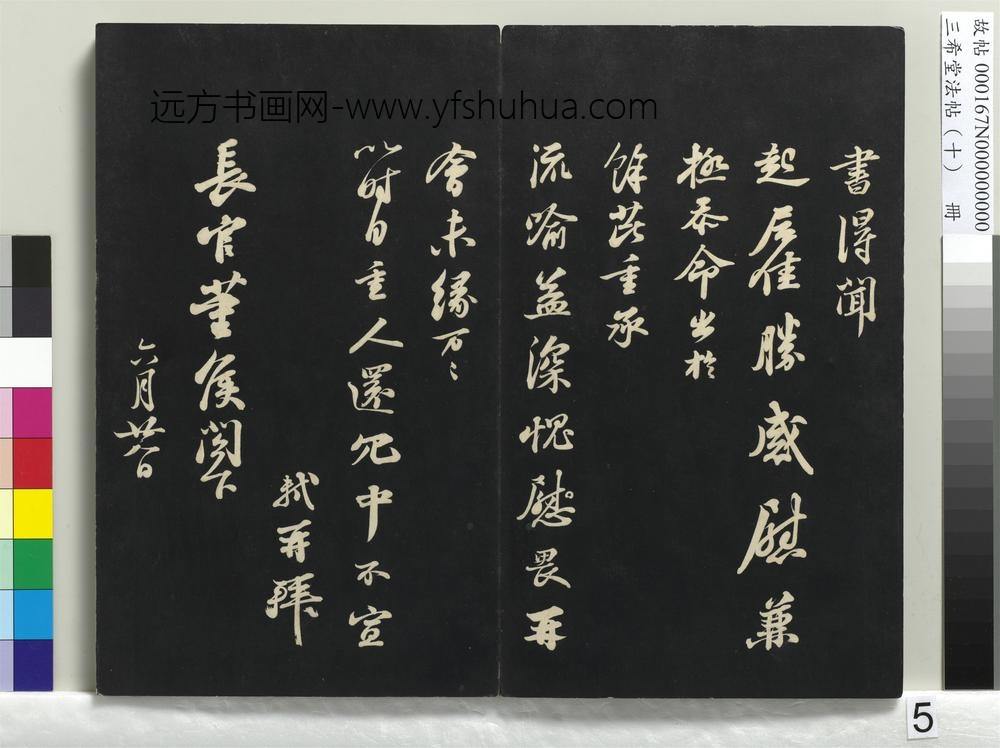 远方书画网-www.yfshuhua.com
書得聞
起居佳勝感慰兼
極忝命出於
餘芘重承
流喻益深愧慰畏再
會未緣万〻
以時自重人還冗中不宣
軾再拜
長官董侯閣下
六月廿八日
故帖 000167N000000000
三希堂法帖（十） 冊
5